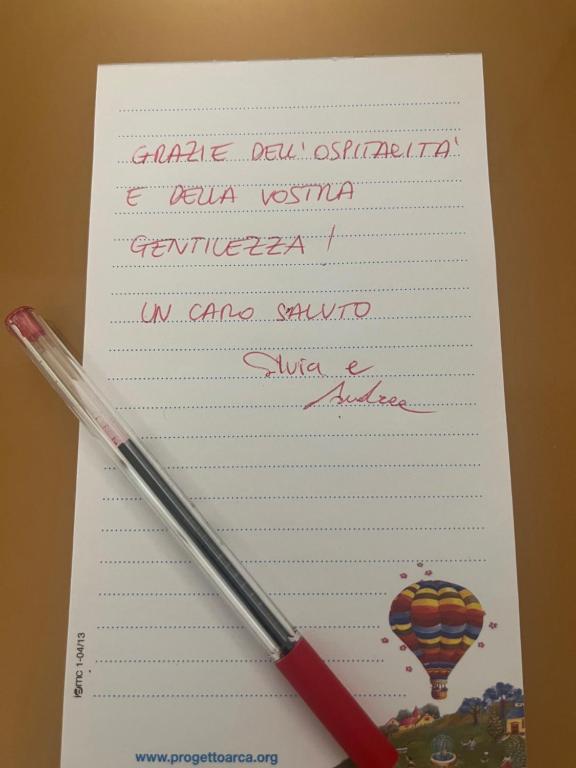 GRAZIE DELL'OSPITALITA'
E DELLA VOSTRA
GENTILEZZA!
UN CARO SALUTO
Silvia e
Andrea
www.progettoarca.org